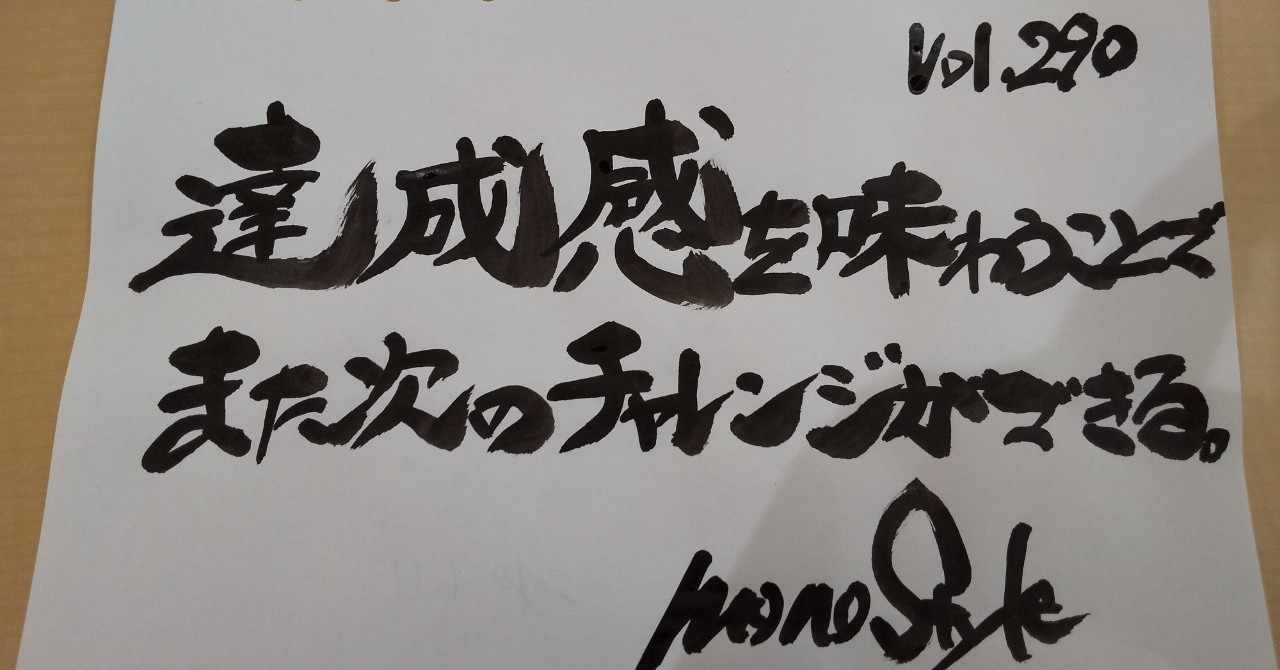 Vol.290
達成感を味わうことで
また次のチャレンジができる。
monoStyle